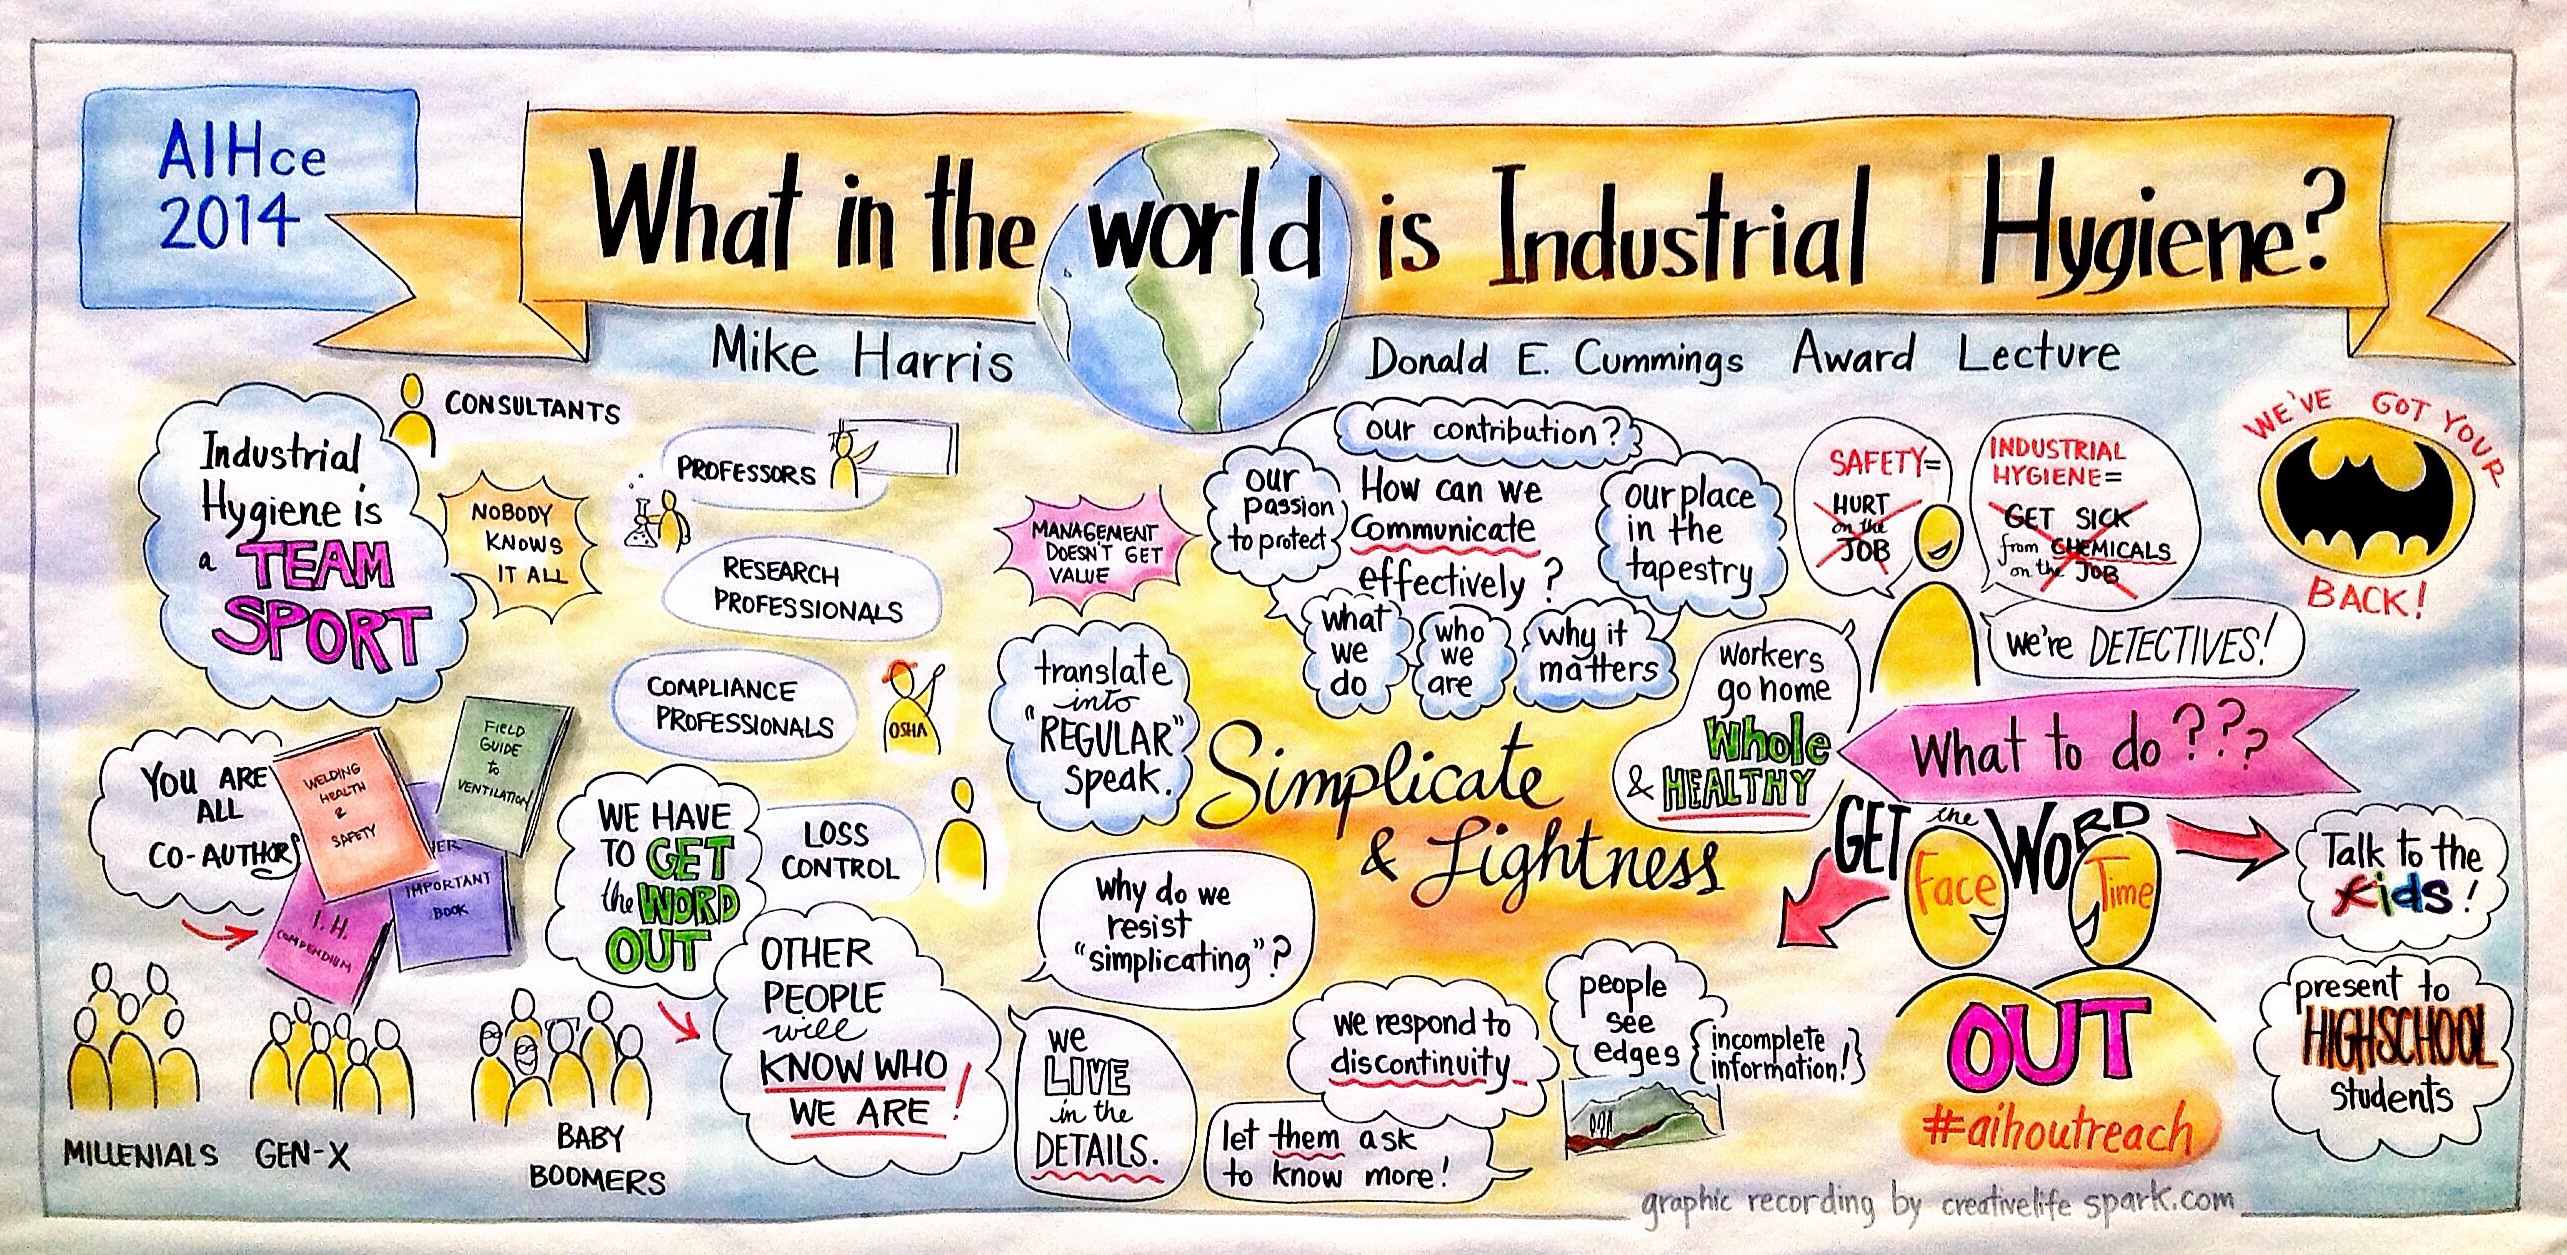 AIHce
2014
What in the world is Industrial Hygiene?
Mike Harris
Donald E. Cummings Award Lecture
Industrial
Hygiene is
a TEAM
SPORT
CONSULTANTS
NOBODY
KNOWS
IT ALL
PROFESSORS
RESEARCH
PROFESSIONALS
COMPLIANCE
PROFESSIONALS
OSHA
LOSS
CONTROL
YOU ARE
ALL
CO-AUTHORS
WELDING
HEALTH
&
SAFETY
FIELD
GUIDE
to
VENTILATION
IMPORTANT
BOOK
I.H.
COMPENDIUM
MILLENIALS
GEN-X
BABY
BOOMERS
WE HAVE
TO GET
the WORD
OUT
OTHER
PEOPLE
will
KNOW WHO
WE ARE!
MANAGEMENT
DOESN'T GET
VALUE
translate
into
"REGULAR"
speak.
our contribution?
our
passion
to protect
How can we
Communicate
effectively?
our place
in the
tapestry
what
we
do
who
we
are
why it
matters
Simplicate
& Lightness
Why do we
resist
"simplicating"?
we
LIVE
in the
DETAILS.
we respond to
discontinuity
let them ask
to know more!
people
see
edges
{incomplete
information!}
SAFETY=
HURT
on the
JOB
INDUSTRIAL
HYGIENE=
GET SICK
from CHEMICALS
on the JOB
we're DETECTIVES!
Workers
go home
Whole
& HEALTHY
WE'VE GOT YOUR
BACK!
What to do???
GET the WORD
Face
Time
OUT
#aihoutreach
Talk to the
kids!
present to
HIGHSCHOOL
students
graphic recording by creativelife spark.com